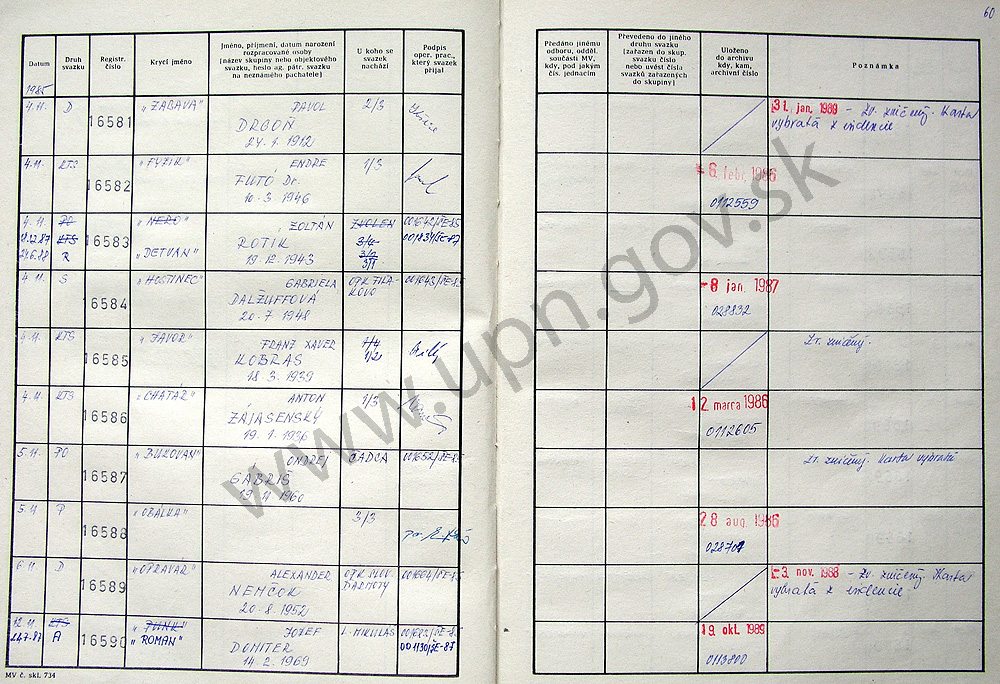 60
Datum
Druh svazku
Registr. číslo
Krycí jméno
Jméno, příjmení, datum narození
rozpracované osoby
(název skupiny nebo objektového
svazku, heslo ag. pátr. svazku
na neznámého pachatele)
U koho se
svazek
nachází
Podpis
oper. prac.,
který svazek
přijal
Předáno jinému
odboru, odděl.
součásti MV,
kdy, pod jakým
čís. jednacím
Převedeno do jiného
druhu svazku
(zařazen do skup.
svazku číslo
nebo uvést čísla
svazků zařazených
do skupiny)
Uloženo
do archivu
kdy, kam,
archivní číslo
Poznámka
1985
4.11. D 16581 „ZÁBAVA" PAVOL 2/3
DRGOŇ
24.1.1912
31. jan. 1989 – Zv. zničený. Karta
vybratá z evidencie
4.11. KTS 16582 „FYZIK" ENDRE 1/3
FUTÓ Dr.
10.3.1946
6. febr. 1986
0112559
4.11. PO 16583 „NERO" ZOLTÁN ZVOLEN
KTS ROTIK 3/4
R „DETVAN" 19.12.1943 3/1
4.11. S 16584 „HOSTINEC" GABRIELA
DALŽUFFOVÁ
20.7.1948
-8 jan. 1987
028832
4.11. KTS 16585 „JAVOR" FRANZ XAVER
KOBRAS 1/2
18.3.1939
Zv. zničený.
4.11. KTS 16586 „CHATÁR" ANTON 1/3
ZÁJASENSKÝ
19.1.1936
12. marca 1986
0112605
5.11. PO 16587 „BUKOVAN" ONDREJ ČADCA
GABRIŠ
1960
Zv. zničený. Karta vybratá
5.11. P 16588 „OBÁLKA" 3/3
28 aug. 1986
6.11. D 16589 „OPRAVÁR" ALEXANDER
NEMČOK
20.8.1952
-3. nov. 1988 – Zv. zničený. Karta
vybratá z evidencie
12.11. KTS 16590 JOZEF L. MIKULÁŠ
A „ROMAN" DOMITER 001130/ŠE-87
14.2.1969
19. okt. 1989
0113800
MV č. skl. 734
www.upn.gov.sk